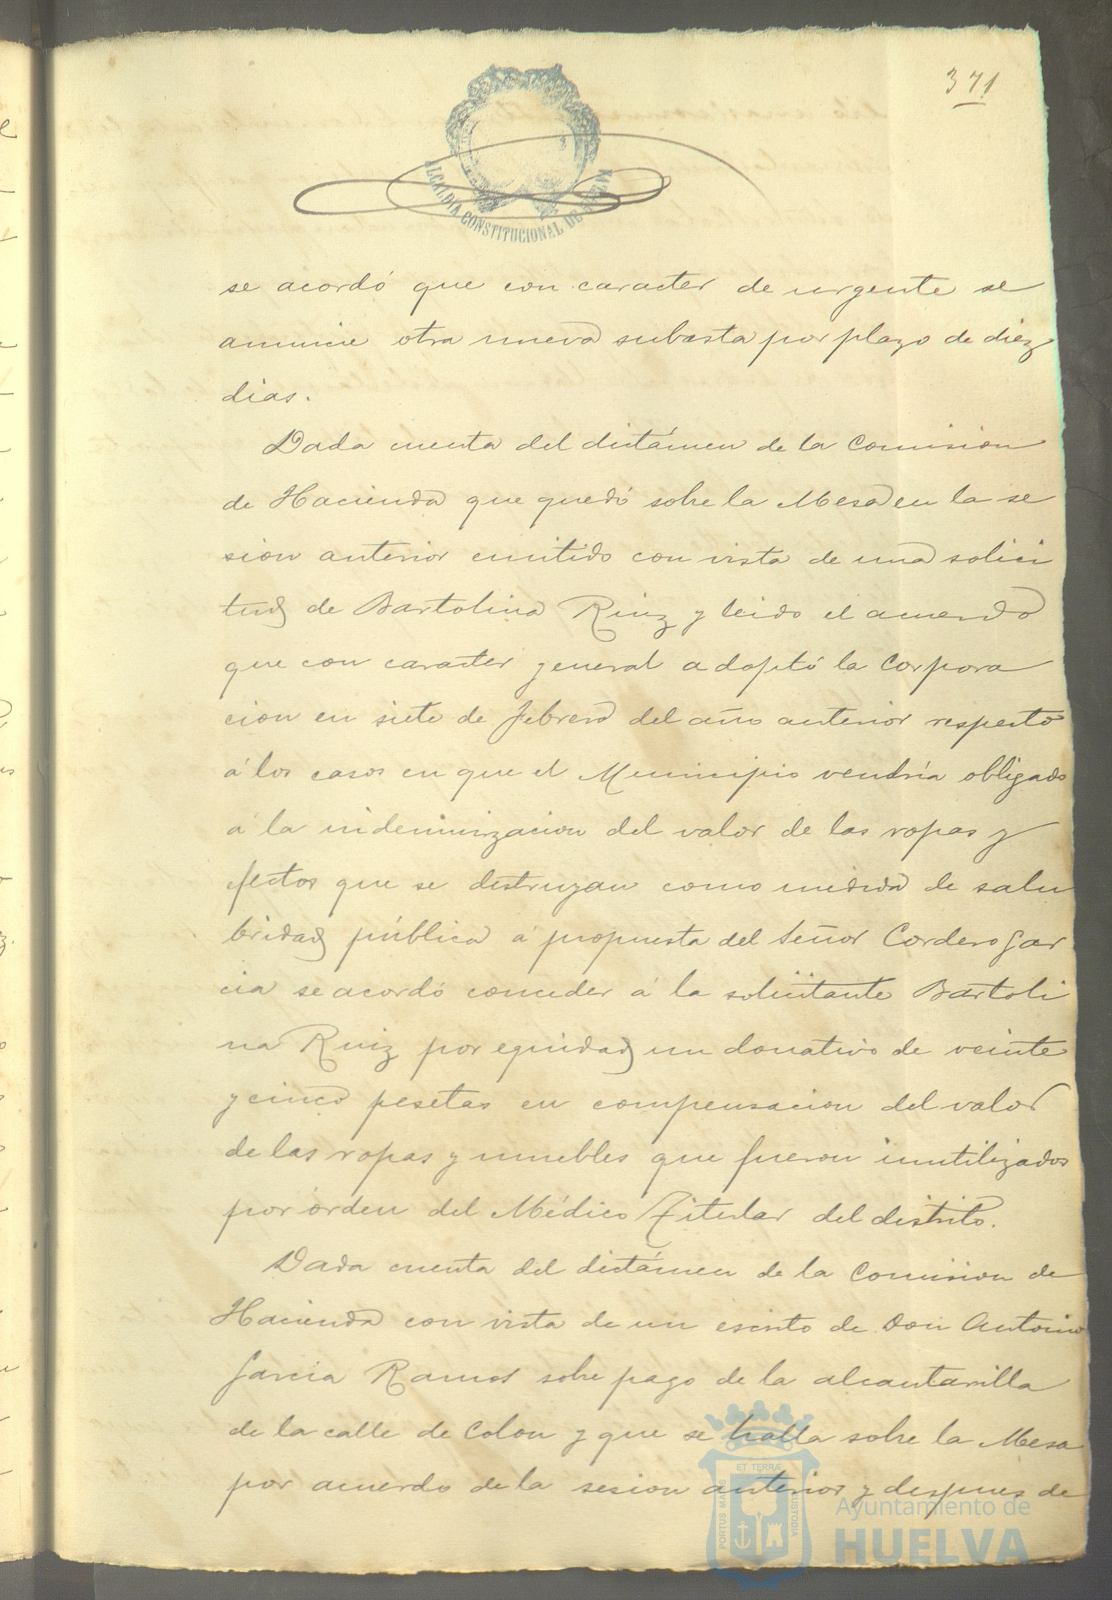 371
ALCALDIA CONSTITUCIONAL DE HUELVA
se acordó que con caracter de urgente se
anuncie otra nueva subasta por plazo de diez
dias.
Dada cuenta del dictámen de la Comision
de Hacienda que quedó sobre la Mesa en la se
sion anterior emitido con vista de una solici
tud de Bartolina Ruiz y leido el acuerdo
que con caracter general adoptó la Corpora
cion en siete de febrero del año anterior respecto
á los casos en que el Municipio vendria obligado
á la indemnizacion del valor de las ropas y
efectos que se destruyan como medida de salu
bridad pública á propuesta del Señor Cordero Gar
cia se acordó conceder á la solicitante Bartoli
na Ruiz por equidad un donativo de veinte
y cinco pesetas en compensacion del valor
de las ropas y muebles que fueron inutilizados
por órden del Médico Titular del distrito.
Dada cuenta del dictámen de la Comision de
Hacienda con vista de un escrito de Don Antonio
Garcia Ramos sobre pago de la alcantarilla
de la calle de Colon y que se halla sobre la Mesa
por acuerdo de la sesion anterior y despues de
PORTUS MARIS ET TERRÆ CUSTODIA
Ayuntamiento de
HUELVA